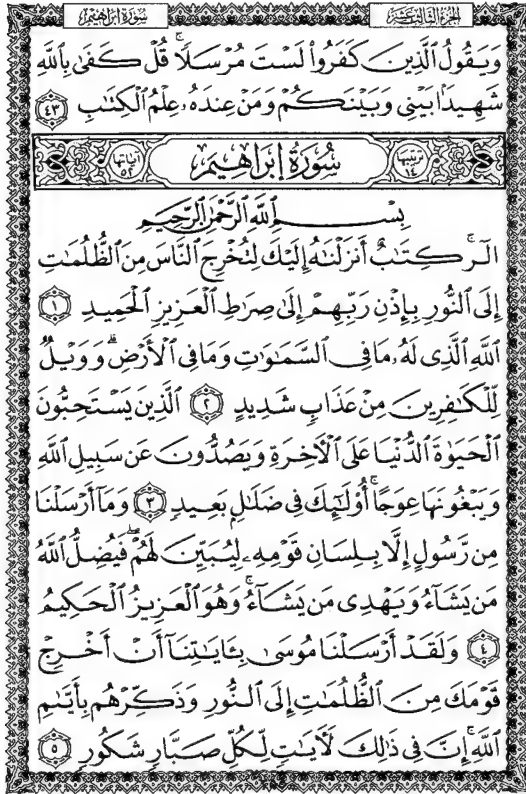 الجزء الثالث عشر سورة إبراهيم
وَيَقُولُ ٱلَّذِينَ كَفَرُواْ لَسْتَ مُرْسَلًاۚ قُلْ كَفَىٰ بِٱللَّهِ
شَهِيدَۢا بَيْنِى وَبَيْنَكُمْ وَمَنْ عِندَهُۥ عِلْمُ ٱلْكِتَٰبِ ٤٣
ترتيبها ١٤ سُورَةُ إِبْرَاهِيمَ آياتها ٥٢
بِسْمِ ٱللَّهِ ٱلرَّحْمَٰنِ ٱلرَّحِيمِ
الٓرۚ كِتَٰبٌ أَنزَلْنَٰهُ إِلَيْكَ لِتُخْرِجَ ٱلنَّاسَ مِنَ ٱلظُّلُمَٰتِ
إِلَى ٱلنُّورِ بِإِذْنِ رَبِّهِمْ إِلَىٰ صِرَٰطِ ٱلْعَزِيزِ ٱلْحَمِيدِ ١
ٱللَّهِ ٱلَّذِى لَهُۥ مَا فِى ٱلسَّمَٰوَٰتِ وَمَا فِى ٱلْأَرْضِۗ وَوَيْلٌ
لِّلْكَٰفِرِينَ مِنْ عَذَابٍ شَدِيدٍ ٢ ٱلَّذِينَ يَسْتَحِبُّونَ
ٱلْحَيَوٰةَ ٱلدُّنْيَا عَلَى ٱلْءَاخِرَةِ وَيَصُدُّونَ عَن سَبِيلِ ٱللَّهِ
وَيَبْغُونَهَا عِوَجًاۚ أُوْلَٰٓئِكَ فِى ضَلَٰلٍۭ بَعِيدٍ ٣ وَمَآ أَرْسَلْنَا
مِن رَّسُولٍ إِلَّا بِلِسَانِ قَوْمِهِۦ لِيُبَيِّنَ لَهُمْۖ فَيُضِلُّ ٱللَّهُ
مَن يَشَآءُ وَيَهْدِى مَن يَشَآءُۚ وَهُوَ ٱلْعَزِيزُ ٱلْحَكِيمُ
٤ وَلَقَدْ أَرْسَلْنَا مُوسَىٰ بِـَٔايَٰتِنَآ أَنْ أَخْرِجْ
قَوْمَكَ مِنَ ٱلظُّلُمَٰتِ إِلَى ٱلنُّورِ وَذَكِّرْهُم بِأَيَّىٰمِ
ٱللَّهِۚ إِنَّ فِى ذَٰلِكَ لَءَايَٰتٍ لِّكُلِّ صَبَّارٍ شَكُورٍ ٥